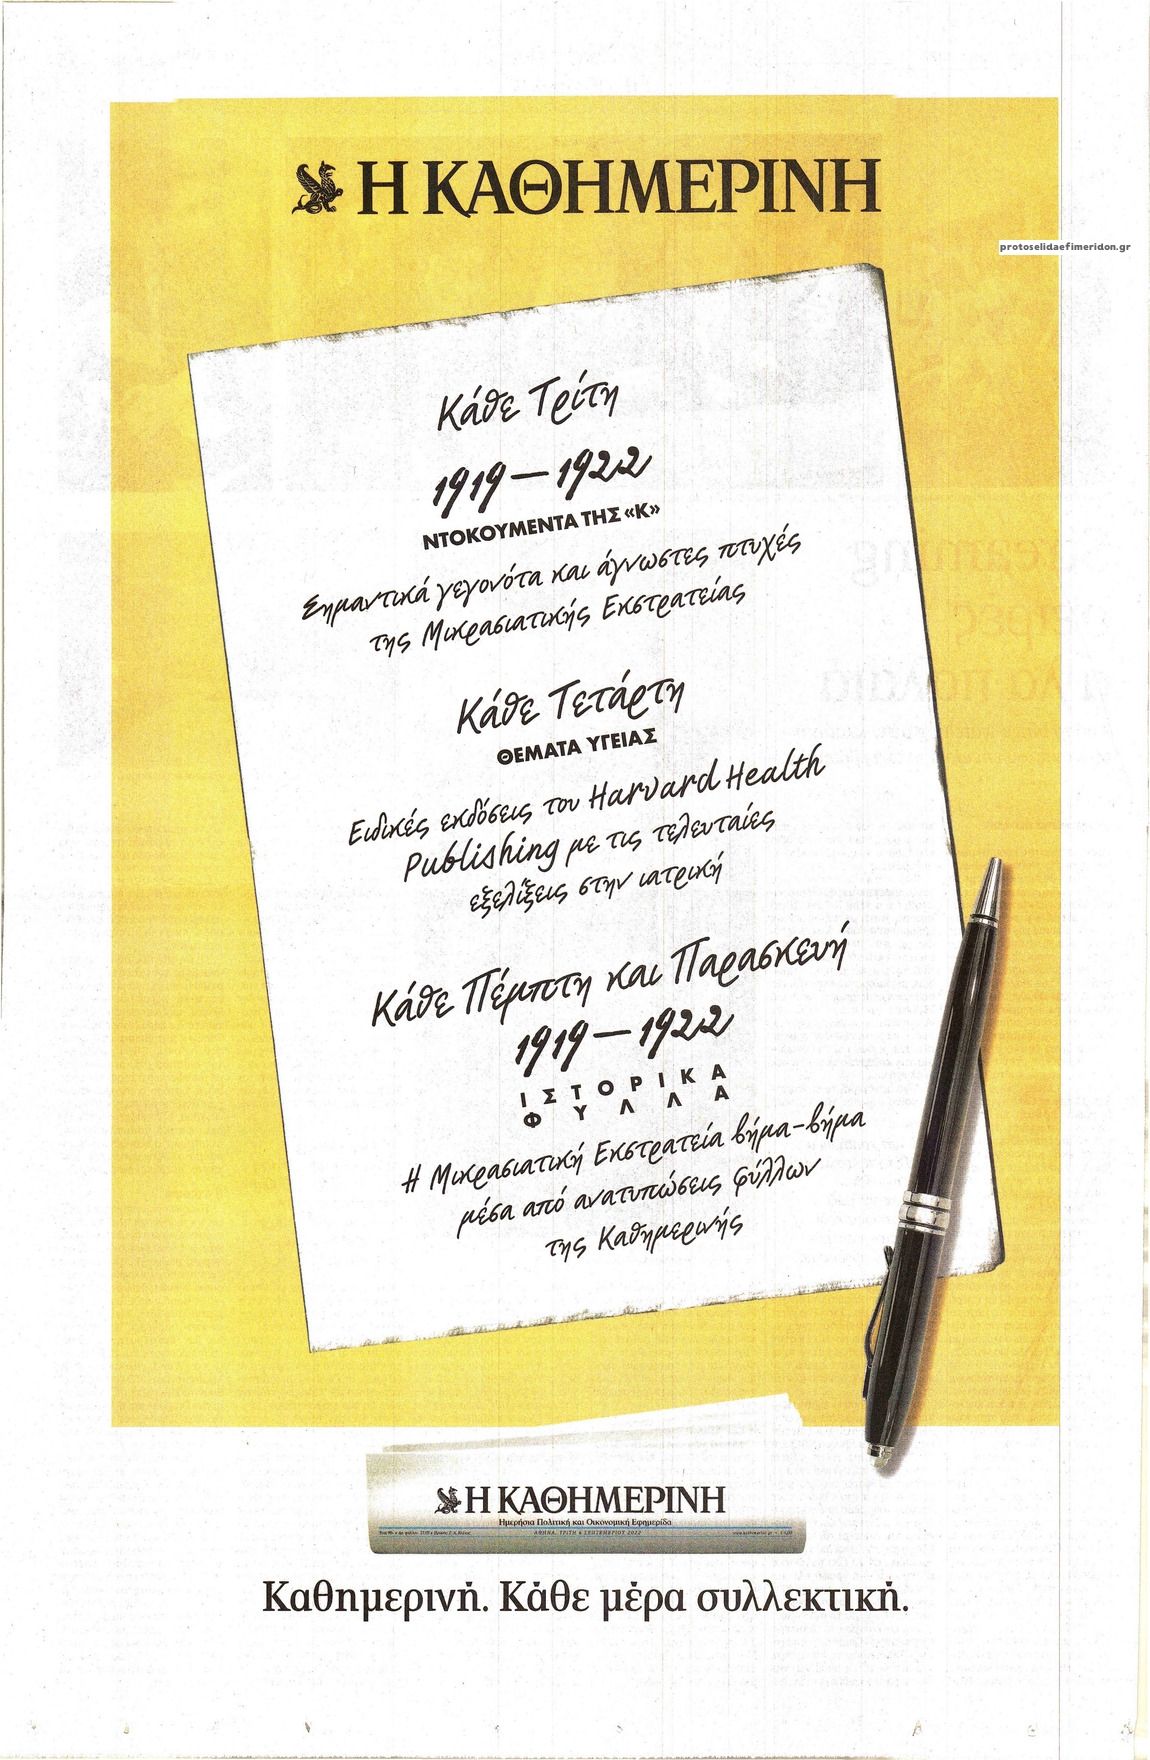 Η ΚΑΘΗΜΕΡΙΝΗ
protoselidaefimeridon.gr
Κάθε Τρίτη
1919 – 1922
ΝΤΟΚΟΥΜΕΝΤΑ ΤΗΣ «Κ»
Σημαντικά γεγονότα και άγνωστες πτυχές
της Μικρασιατικής Εκστρατείας
Κάθε Τετάρτη
ΘΕΜΑΤΑ ΥΓΕΙΑΣ
Ειδικές εκδόσεις του Harvard Health
Publishing με τις τελευταίες
εξελίξεις στην ιατρική
Κάθε Πέμπτη και Παρασκευή
1919 – 1922
ΙΣΤΟΡΙΚΑ
ΦΥΛΛΑ
Η Μικρασιατική Εκστρατεία βήμα-βήμα
μέσα από ανατυπώσεις φύλλων
της Καθημερινής
Η ΚΑΘΗΜΕΡΙΝΗ
Ημερήσια Πολιτική και Οικονομική Εφημερίδα
ΑΘΗΝΑ, ΤΡΙΤΗ 6 ΣΕΠΤΕΜΒΡΙΟΥ 2022
Καθημερινή. Κάθε μέρα συλλεκτική.